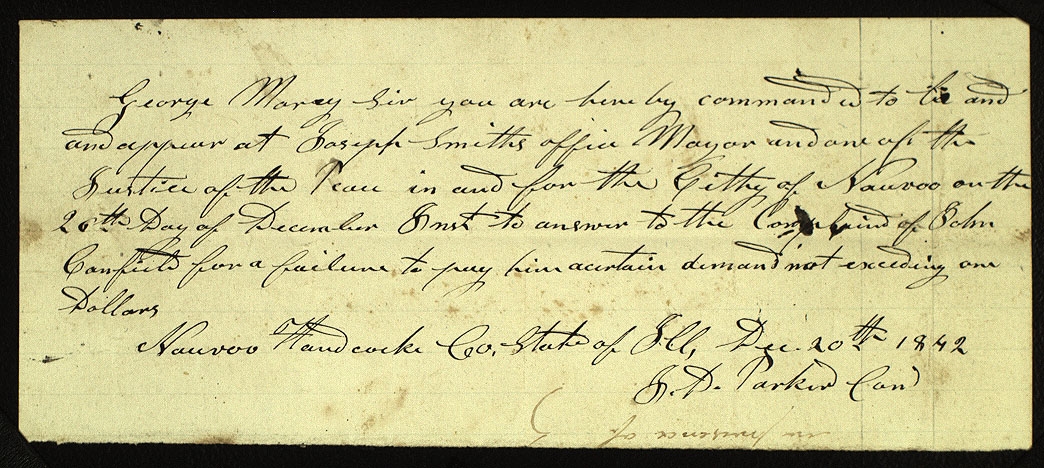 George Morey Sir you are hereby commanded to be and
and appear at Joseph Smiths office Mayor and one of the
Justice of the Peace in and for the Citty of Nauvoo on the
26th Day of December Inst to answer to the Complaind of John
Canfield for a failure to pay him a certain demand not exceding one
Dollars
Nauvoo Handcocke Co, State of Ill, Dec. 20th 1842
J. D. Parker Con
in presence of